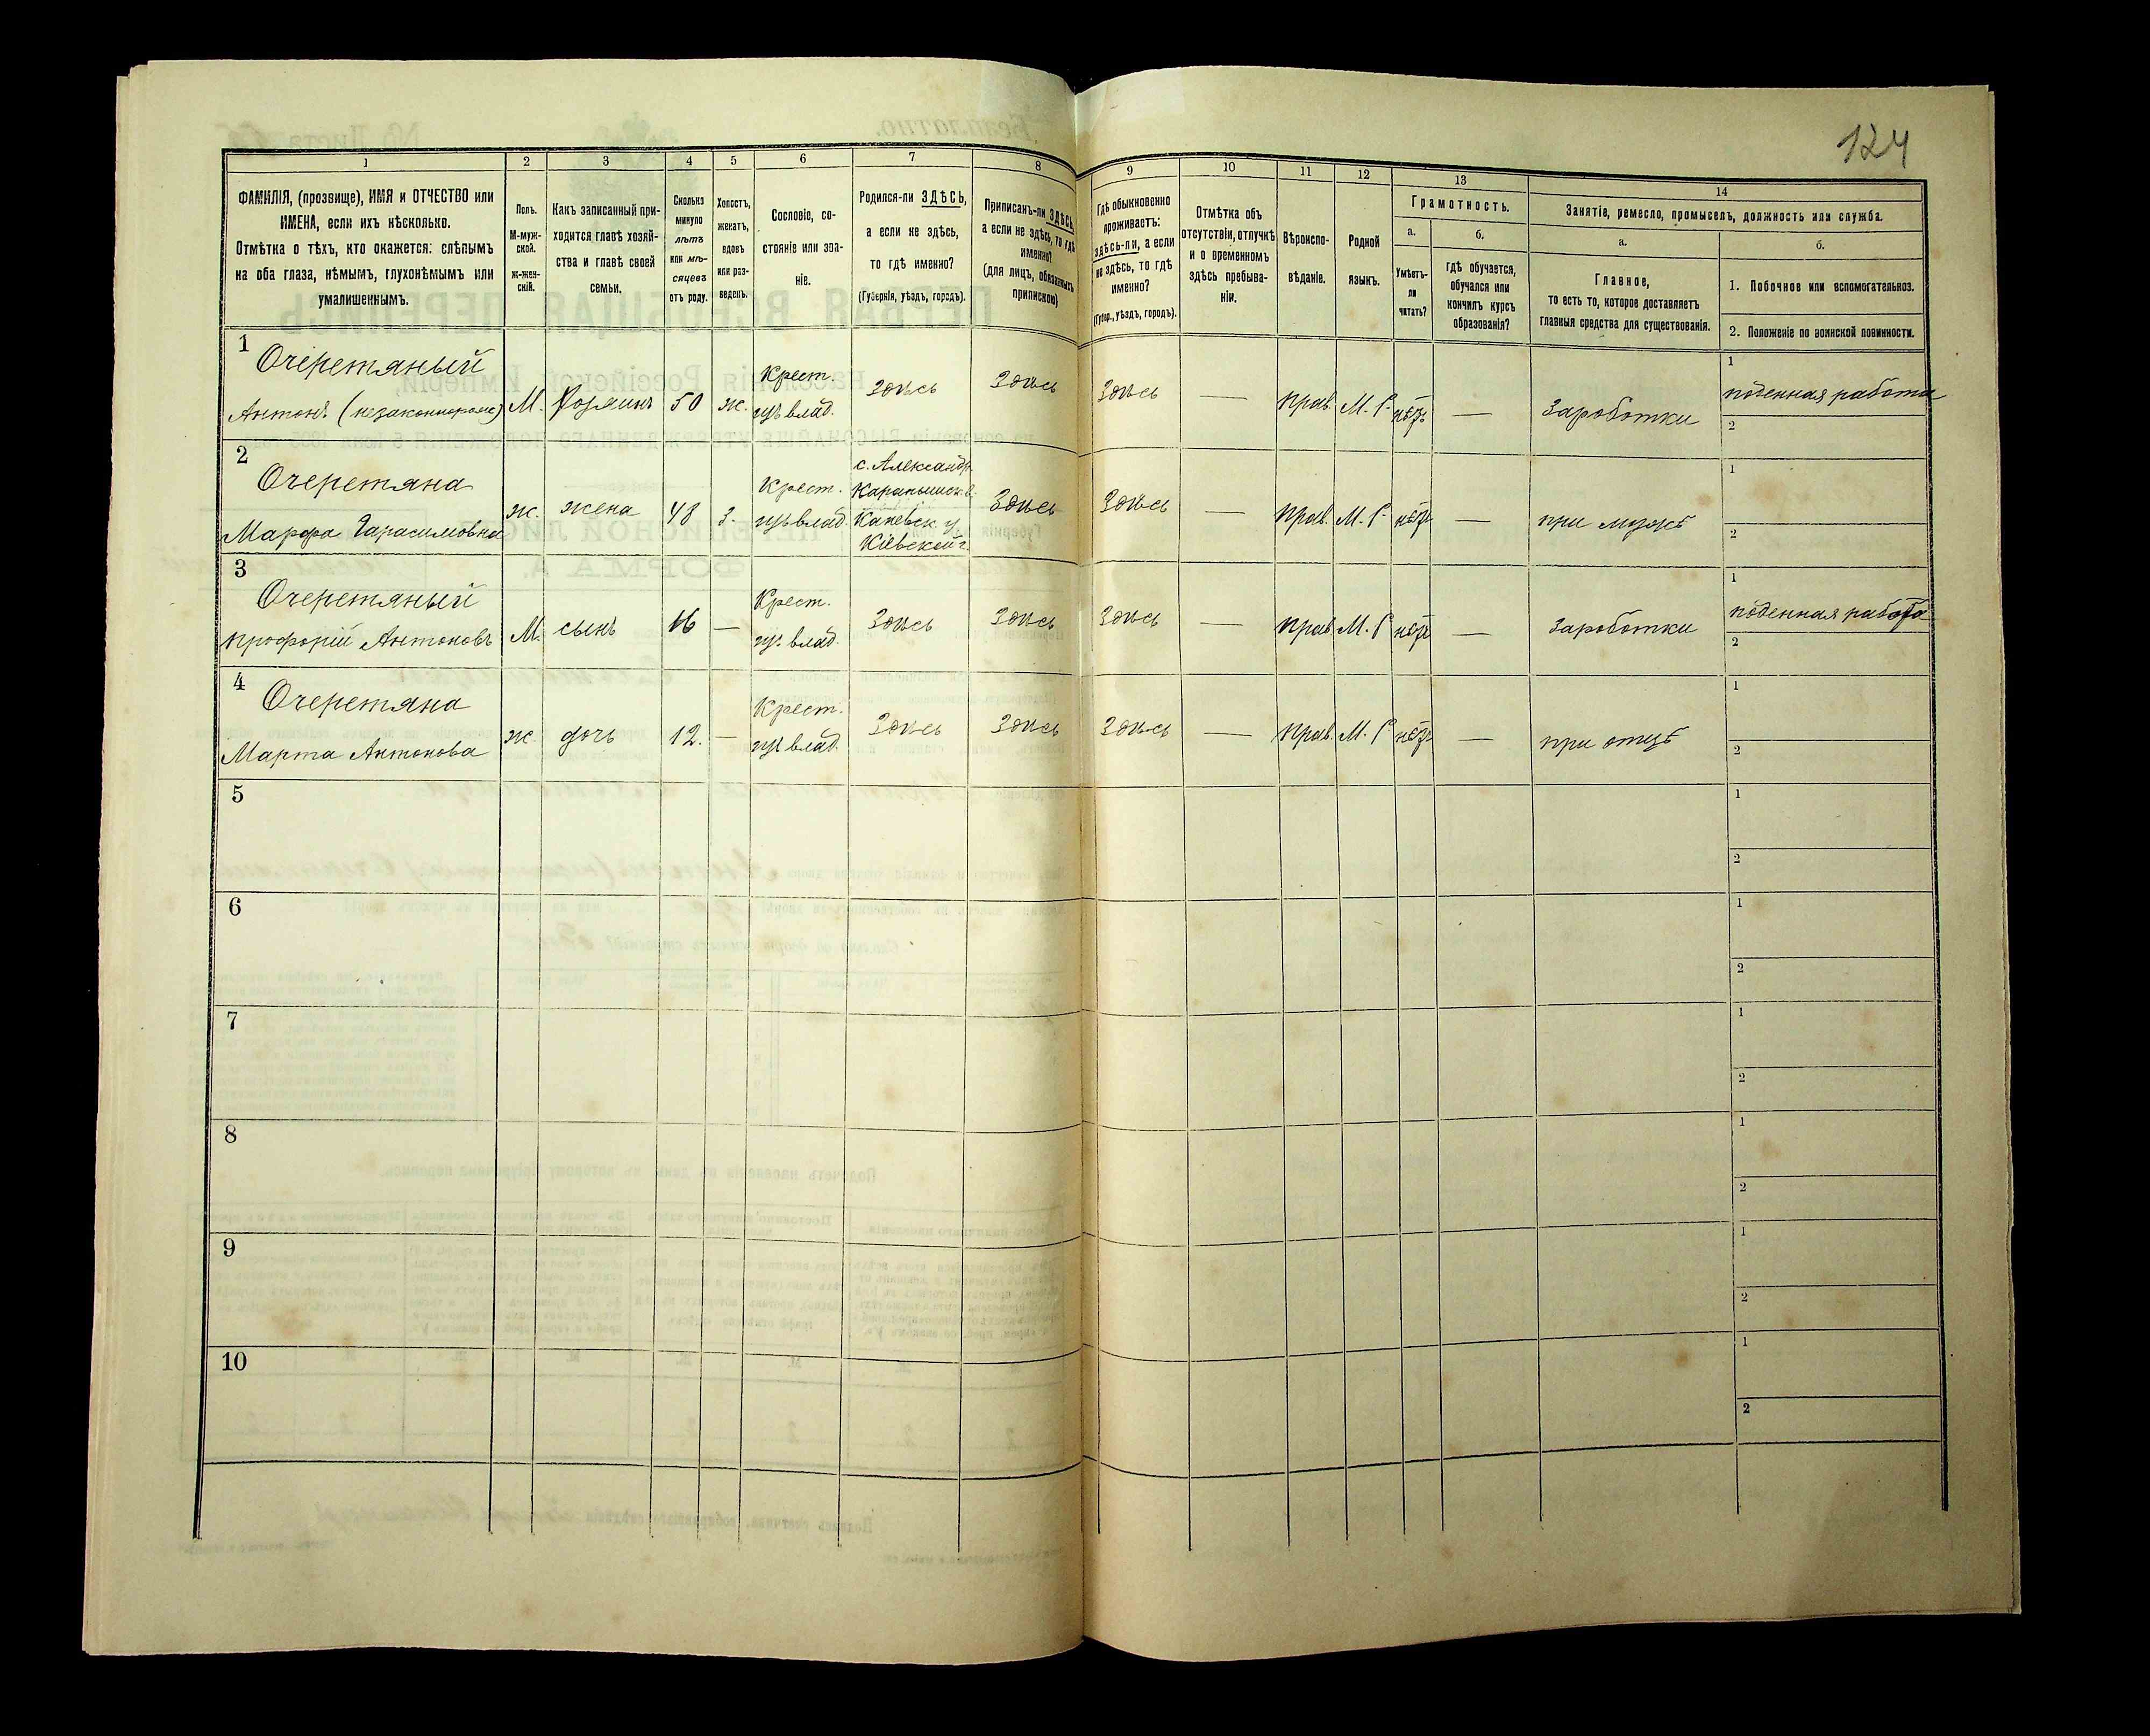 124
1
2
3
4
5
6
7
8
9
10
11
12
13
14
ФАМИЛІЯ, (прозвище), ИМЯ и ОТЧЕСТВО или
ИМЕНА, если ихъ нѣсколько.
Отмѣтка о тѣхъ, кто окажется: слѣпымъ
на оба глаза, нѣмымъ, глухонѣмымъ или
умалишеннымъ.
Полъ.
М-муж-
ской.
ж-жен-
скій.
Какъ записанный при-
ходится главѣ хозяй-
ства и главѣ своей
семьи.
Сколько
минуло
лѣтъ
или мѣ-
сяцевъ
отъ роду.
Холостъ,
женатъ,
вдовъ
или раз-
веденъ.
Сословіе, со-
стояніе или зва-
ніе.
Родился-ли ЗДѢСЬ,
а если не здѣсь,
то гдѣ именно?
(Губернія, уѣздъ, городъ).
Приписанъ-ли ЗДѢСЬ,
а если не здѣсь, то гдѣ
именно?
(для лицъ, обязанныхъ
припискою)
Гдѣ обыкновенно
проживаетъ:
здѣсь-ли, а если
не здѣсь, то гдѣ
именно?
(Губер., уѣздъ, городъ).
Отмѣтка объ
отсутствіи, отлучкѣ
и о временномъ
здѣсь пребыва-
ніи.
Вѣроиспо-
вѣданіе.
Родной
языкъ.
Грамотность.
а.
Умѣетъ-
ли
читать?
б.
гдѣ обучается,
обучался или
кончилъ курсъ
образованія?
Занятіе, ремесло, промыселъ, должность или служба.
а.
Главное,
то есть то, которое доставляетъ
главныя средства для существованія.
б.
1. Побочное или вспомогательноз.
2. Положеніе по воинской повинности.
1
Очеретяный
Антонъ (незаконнорож) М. 50 ж. Крест. влад. Здѣсь Здѣсь Здѣсь — прав. М. Р. нѣтъ — Зароботки
1
поденная работа
2
2
Очеретяна
Марфа Гарасимовна ж. жена 48 З. Крест. влад.
с. Александр.
Каневск. у.
Кіевской г.
Здѣсь Здѣсь — прав. М. Р. нѣтъ — при мужѣ
1
2
3
Очеретяный
Профорій Антоновъ М. сынъ 16 — Крест. влад. Здѣсь Здѣсь Здѣсь — прав М. Р. нѣтъ — Зароботки
1
поденная работа
2
4
Очеретяна
Марта Антонова ж. дочь 12. — Крест. влад. Здѣсь Здѣсь Здѣсь — прав. М. Р. нѣтъ — при отцѣ
1
2
5
1
2
6
1
2
7
1
2
8
1
2
9
1
2
10
1
2